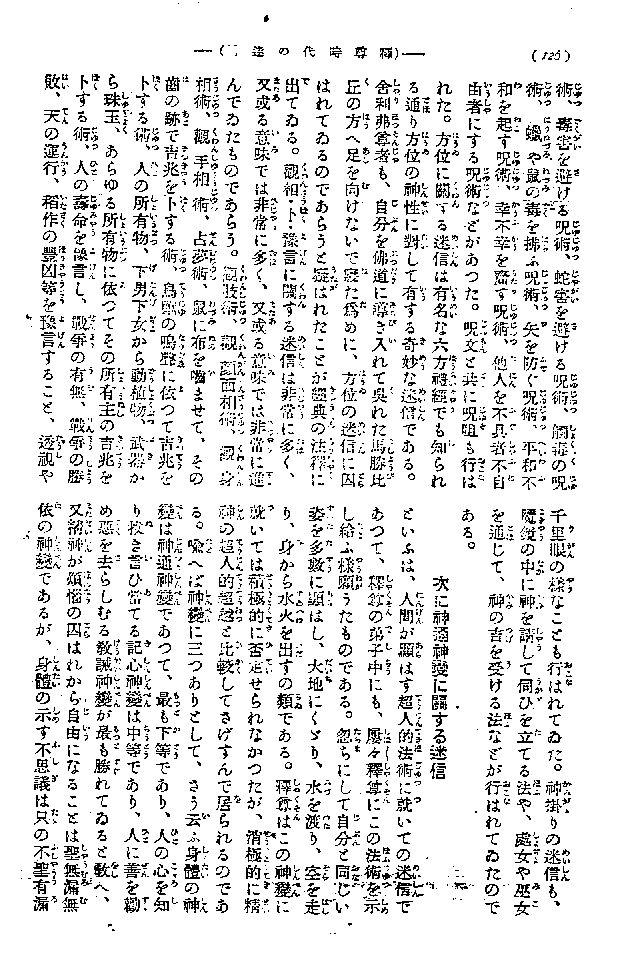 (126)
—(釋尊時代の迷　)—
術、毒害を避ける呪術、蛇害を避ける呪術、觸毒の呪
術、蠍や鼠の毒を拂ふ呪術、矢を防ぐ呪術、平和不
和を起す呪術、幸不幸を齎す呪術、他人を不具者不自
由者にする呪術などがあつた。呪文と共に呪咀も行は
れた。方位に關する迷信は有名な六方禮經でも知られ
る通り方位の神性に對して有する奇妙な迷信である。
舍利弗尊者も、自分を佛道に導き入れて呉れた馬勝比
丘の方へ足を向けないで寢た爲めに、方位の迷信に囚
はれてゐるのであらうと疑はれたことが經典の法釋に
出てゐる。觀相、卜、豫言に關する迷信は非常に多く、
又或る意味では非常に多く、又或る意味では非常に進
んでゐたものであらう。觀肢術、觀顏面相術、觀身
相術、觀手相術、占夢術、鼠に布を嚙ませて、その
齒の跡で吉兆を卜する術、鳥獸の鳴聲に依つて吉兆を
卜する術、人の所有物、下男下女から動植物、武器か
ら珠玉、あらゆる所有物に依つてその所有主の吉兆を
卜する術、人の壽命を豫言し、戰爭の有無、戰爭の勝
敗、天の運行、稻作の豐凶等を豫言すること、透視や
千里眼の樣なことも行はれてゐた。神掛りの迷信も、
魔鏡の中に神を請して伺ひを立てる法や、處女や巫女
を通じて、神の吿を受ける法などが行はれてゐたので
ある。
次に神通神變に關する迷信
といふは、人間が顯はす超人的法術に就いての迷信で
あつて、釋尊の弟子中にも、屢々釋尊にこの法術を示
し給ふ樣願うたものである。忽ちにして自分と同じい
姿を多數に顯はし、大地にくゞり、水を渡り、空を走
り、身から水火を出すの類である。釋尊はこの神變に
就いては積極的に否定せられなかつたが、消極的に精
神の超人的超越と比較してさげすんで居られるのであ
る。喩へば神變に三つありとして、さう云ふ身體の神
變は神通神變であつて、最も下等であり、人の心を知
り拔き言ひ當てる記心神變は中等であり、人に善を勸
め惡を去らしむる敎誡神變が最も勝れてゐると敎へ、
又精神が煩惱の囚はれから自由になることは聖無漏無
依の神變であるが、身體の示す不思議は只の不聖有漏